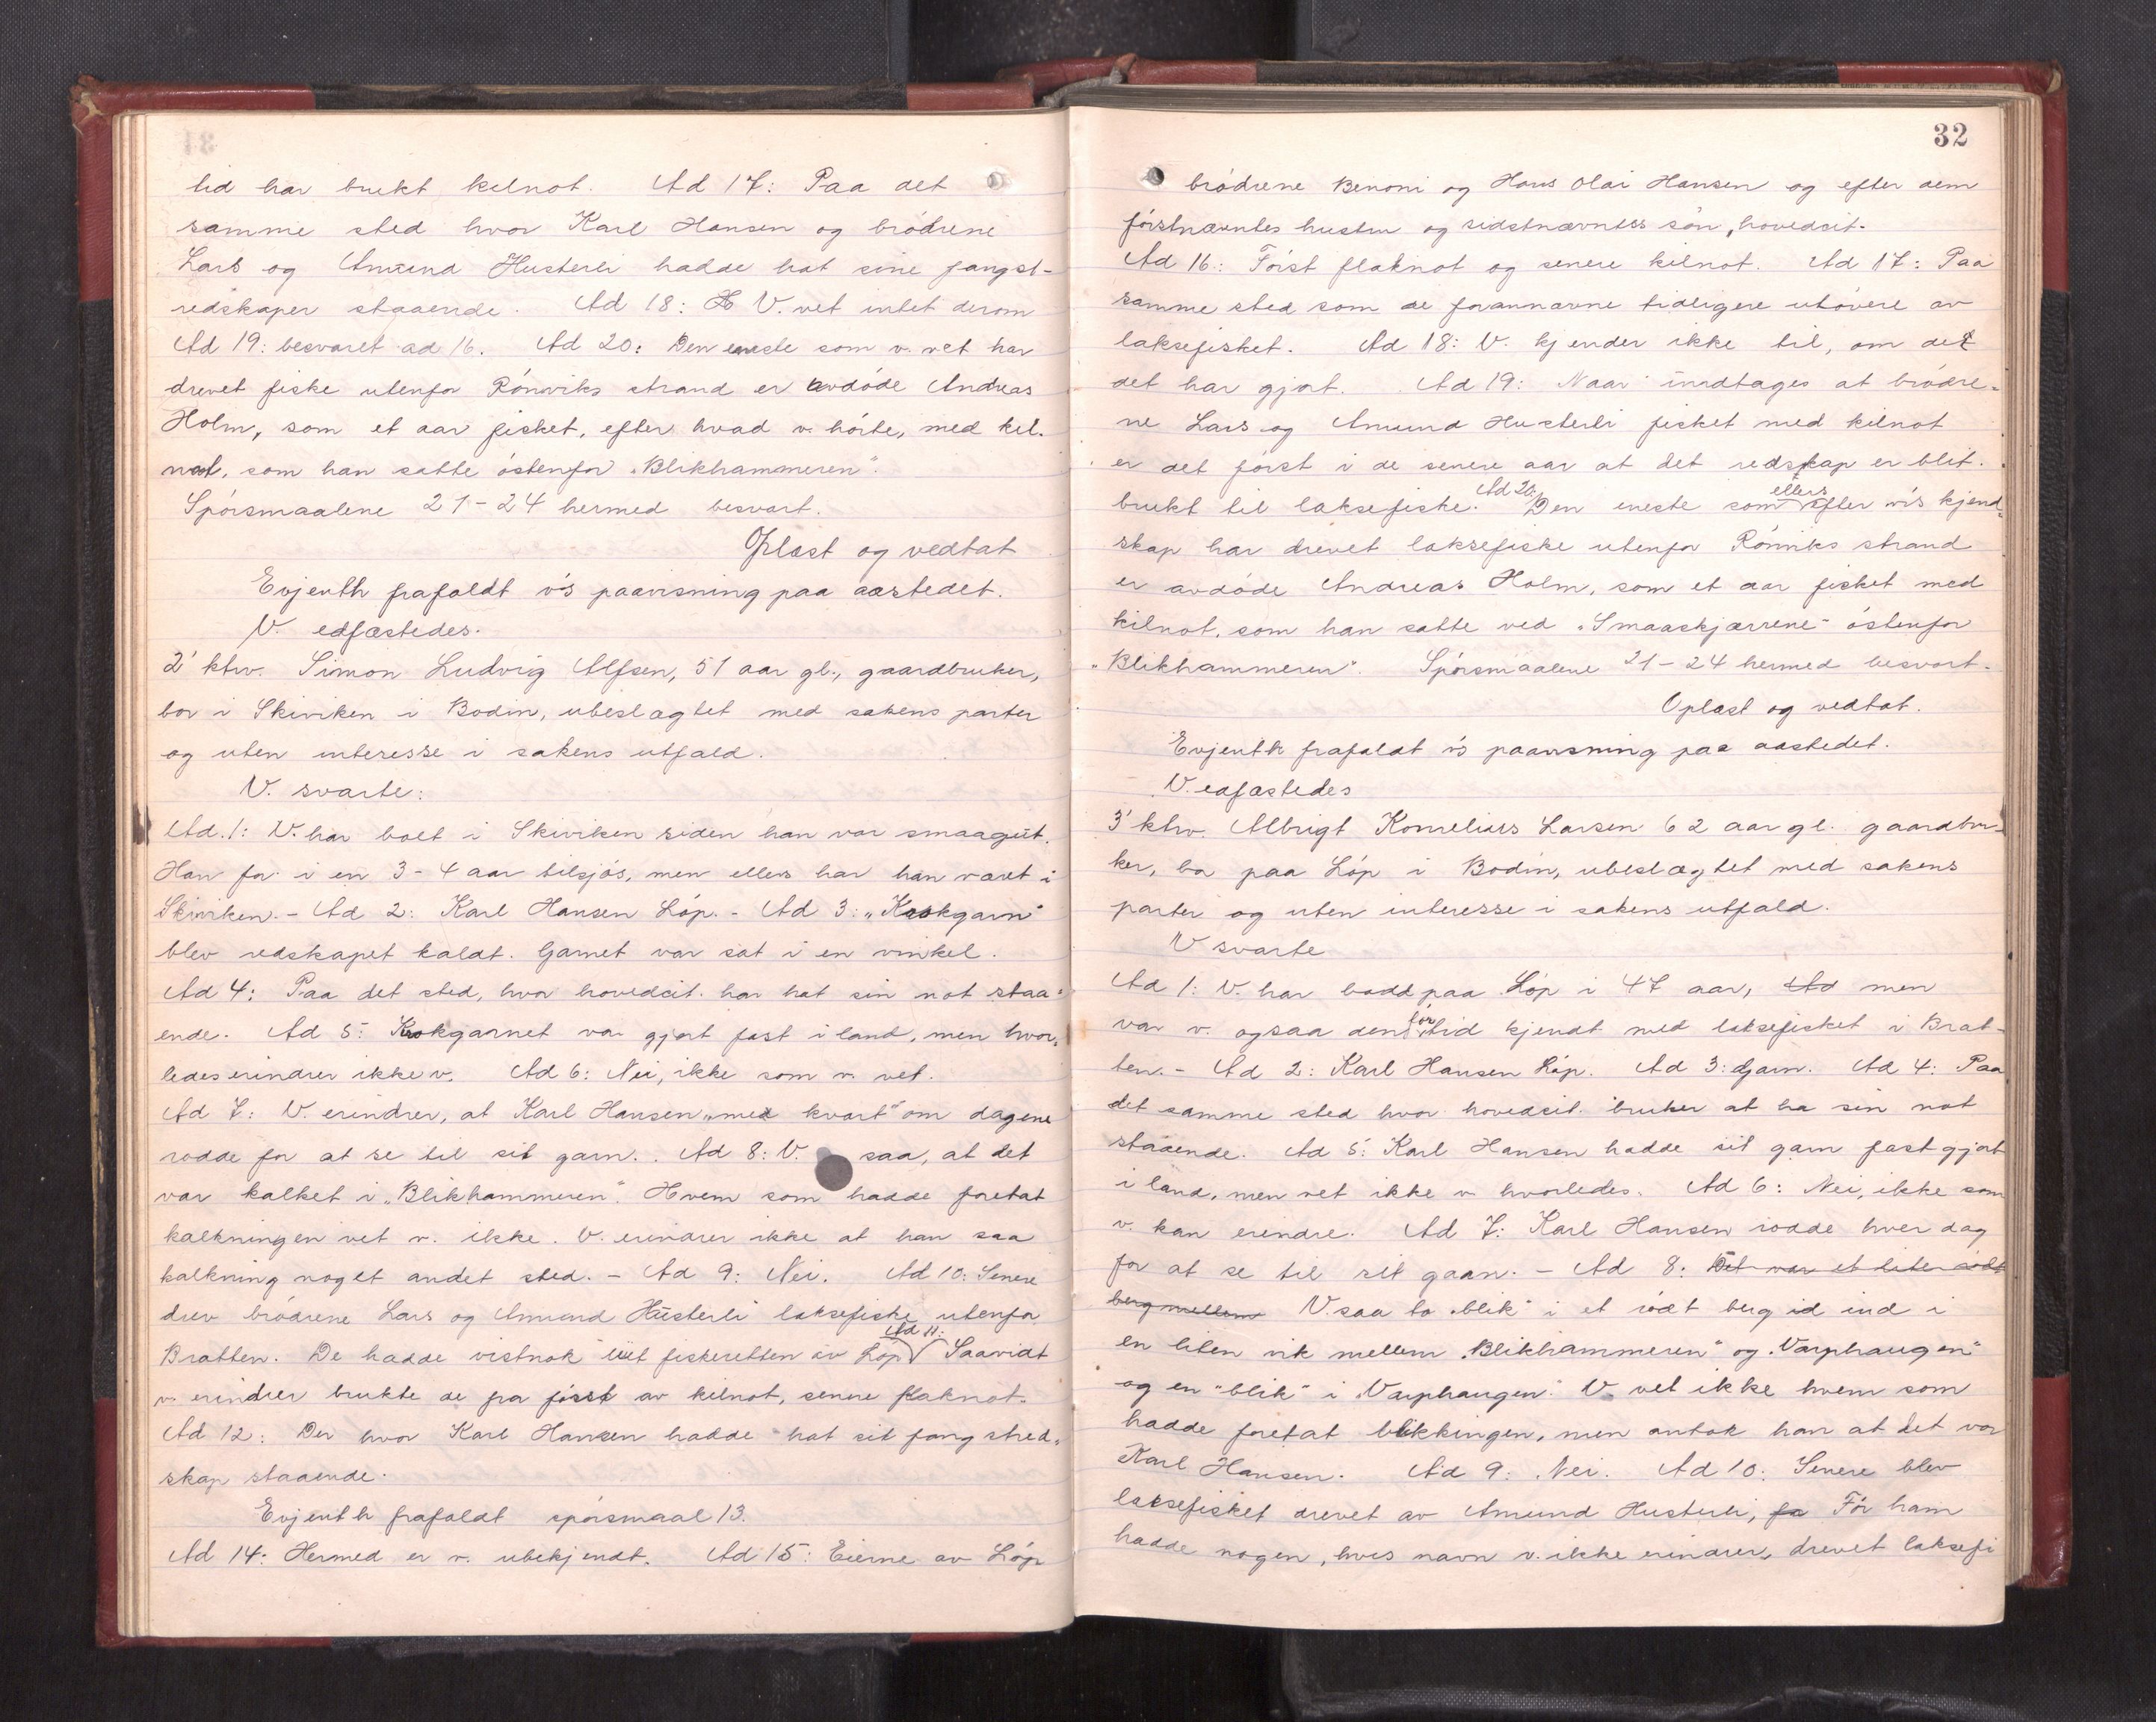 tid har brukt kilnot. Ad 17: Paa det
samme sted hvor Karl Hansen og brødrene
Lars og Amund Husterli hadde hat sine fangst-
redskaper staaende. Ad 18: V. vet intet derom
Ad 19: besvaret ad 16. Ad 20: Den eneste som v. vet har
drevet fiske utenfor Rønviks strand er avdøde Andreas
Holm, som et aar fisket, efter hvad v. hørte, med kil-
not, som han satte østenfor „Blikhammeren".
Spørsmaalene 21-24 hermed besvart.
Oplæst og vedtat
Evjenth frafaldt v's paavisning paa aastedet.
V. edfæstedes.
2' ktv. Simon Ludvig Alfsen, 51 aar gl., gaardbruker,
bor i Skiviken i Bodin, ubeslægtet med sakens parter
og uten interesse i sakens utfald.
V. svarte:
Ad. 1: V. har boet i Skiviken siden han var smaagut.
Han for i en 3-4 aar tilsjøs, men ellers har han været i
Skiviken. - Ad 2: Karl Hansen Løp. - Ad 3: „Krokgarn"
blev redskapet kaldt. Garnet var sat i en vinkel.
Ad 4: Paa det sted, hvor hovedcit. har hat sin not staa-
ende. Ad 5: Krokgarnet var gjort fast i land, men hvor-
ledes erindrer ikke v. Ad 6: Nei, ikke som v. vet.
Ad 7: V. erindrer, at Karl Hansen „med kvart" om dagene
rodde for at se til sit garn. Ad 8: V. saa, at det
var kalket i „Blikhammeren". Hvem som hadde foretat
kalkningen vet v. ikke. V. erindrer ikke at han saa
kalkning noget andet sted. - Ad 9: Nei. Ad 10: Senere
drev brødrene Lars og Amund Husterli laksefiske utenfor
Bratten. De hadde vistnok leiet fiskeretten av Løp Ad 11: Saavidt
v. erindrer brukte de fra først av kilnot, senere flaknot.
Ad 12: Der hvor Karl Hansen hadde hat sit fangstred-
skap staaende.
Evjenth frafaldt spørsmaal 13.
Ad 14: Hermed er v. ubekjendt. Ad 15: Eierne av Løp
32
brødrene Benoni og Hans Olai Hansen og efter dem
førstnævntes hustru og sidstnævntes søn, hovedcit.
Ad 16: Først flaknot og senere kilnot. Ad 17: Paa
samme sted som de forannævne tidligere utøvere av
laksefisket. Ad 18: V. kjender ikke til, om de
det har gjort. Ad 19: Naar undtages at brødre-
ne Lars og Amund Husterli fisket med kilnot
er det først i de senere aar at det redskap er blit
brukt til laksefiske. Ad 20: Den eneste som ellers efter v's kjend-
skap har drevet laksefiske utenfor Rønviks strand
er avdøde Andreas Holm, som et aar fisket med
kilnot, som han satte ved „Smaaskjærrene" østenfor
„Blikhammeren". Spørsmaalene 21-24 hermed besvart.
Oplæst og vedtat.
Evjenth frafaldt v's paavisning paa aastedet.
V. edfæstedes
3' ktv. Albrigt Kornelius Larsen 62 aar gl. gaardbru-
ker, bor paa Løp i Bodin, ubeslægtet med sakens
parter og uten interesse i sakens utfald.
V svarte
Ad 1: V. har bodd paa Løp i 47 aar, Ad men
var v. ogsaa den før tid kjendt med laksefisket i Brat-
ten. - Ad 2: Karl Hansen Løp. Ad 3: Garn. Ad 4: Paa
det samme sted hvor hovedcit. bruker at ha sin not
staaende. Ad 5: Karl Hansen hadde sit garn fastgjort
i land, men vet ikke v. hvorledes. Ad 6: Nei, ikke som
v. kan erindre. Ad 7: Karl Hansen rodde hver dag
for at se til sit gaan. - Ad 8: Det var et liten rødt
berg mellem V. saa to „blik" i et rødt berg id ind i
en liten vik mellem „Blikhammeren" og „Varphaugen"
og en "blik" i „Varphaugen". V. vet ikke hvem som
hadde foretat blikkingen, men antok han at det var
Karl Hansen. Ad 9: Nei. Ad 10: Senere blev
laksefisket drevet av Amund Husterli, fø Før ham
hadde nogen, hvis navn v. ikke erindrer, drevet laksefi